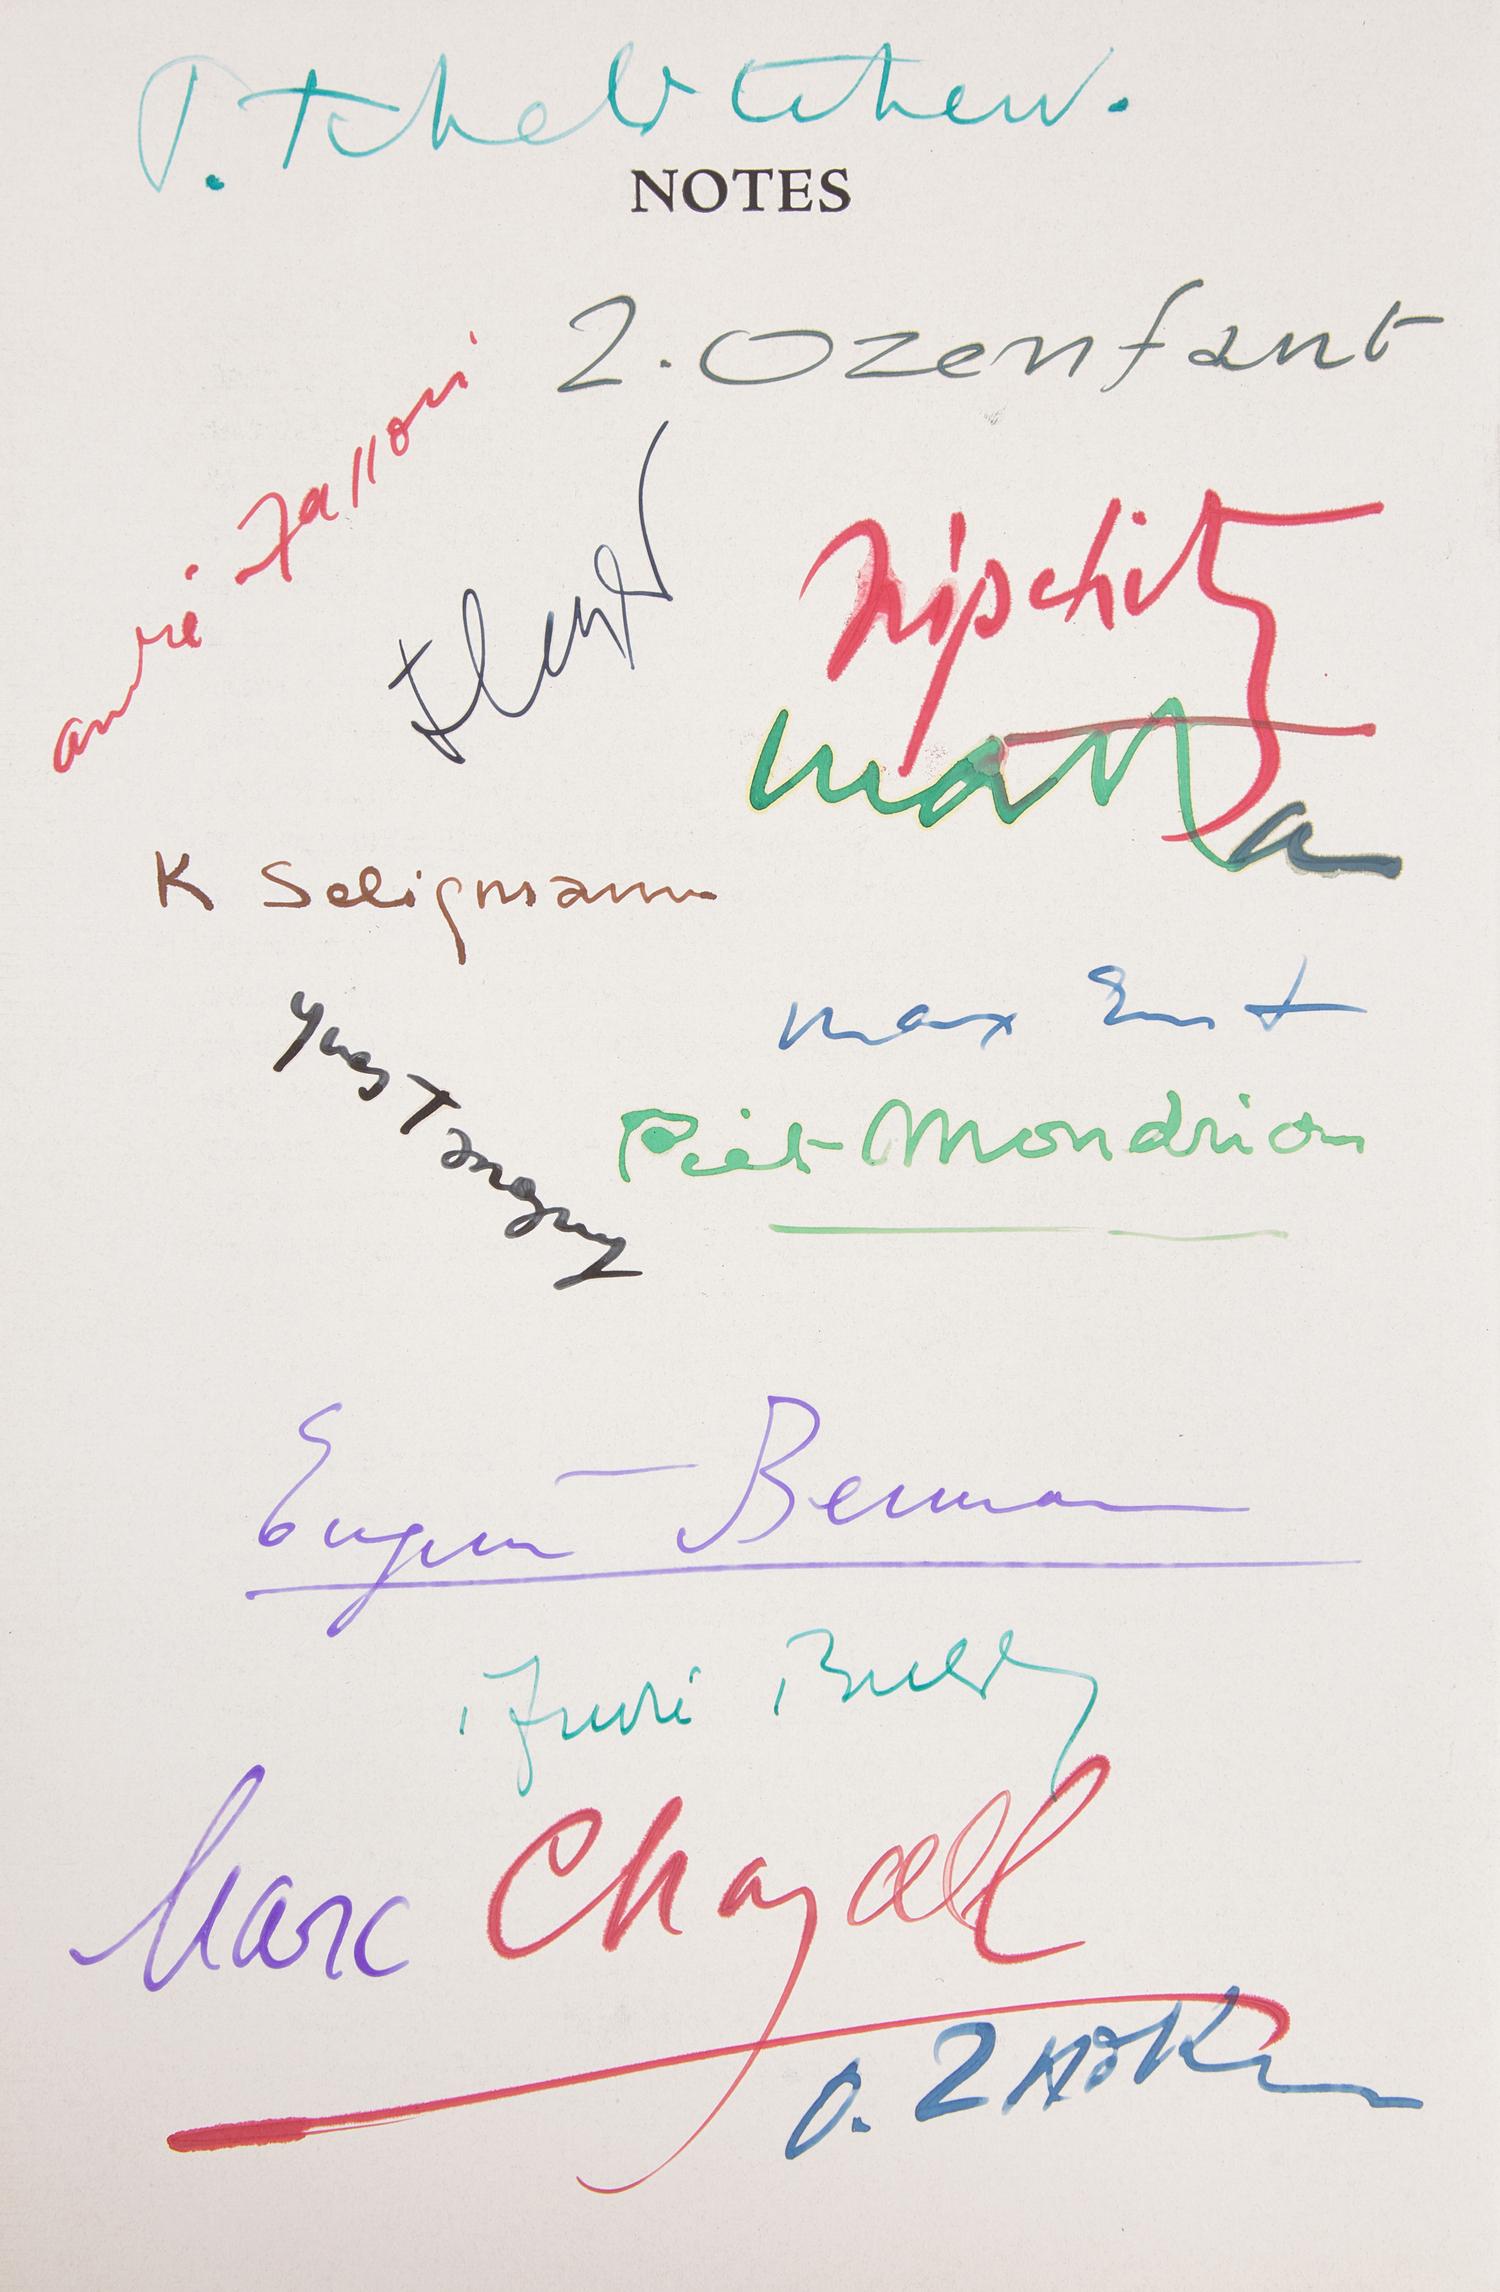 P. Tchelitchew.
NOTES
a. Ozenfant
andré Masson
FLeger
Lipchitz
matta
K Seligmann
max Ernst
yves Tanguy
Piet Mondrian
Eugene Berman
André Breton
Marc Chagall
O. Zadkine